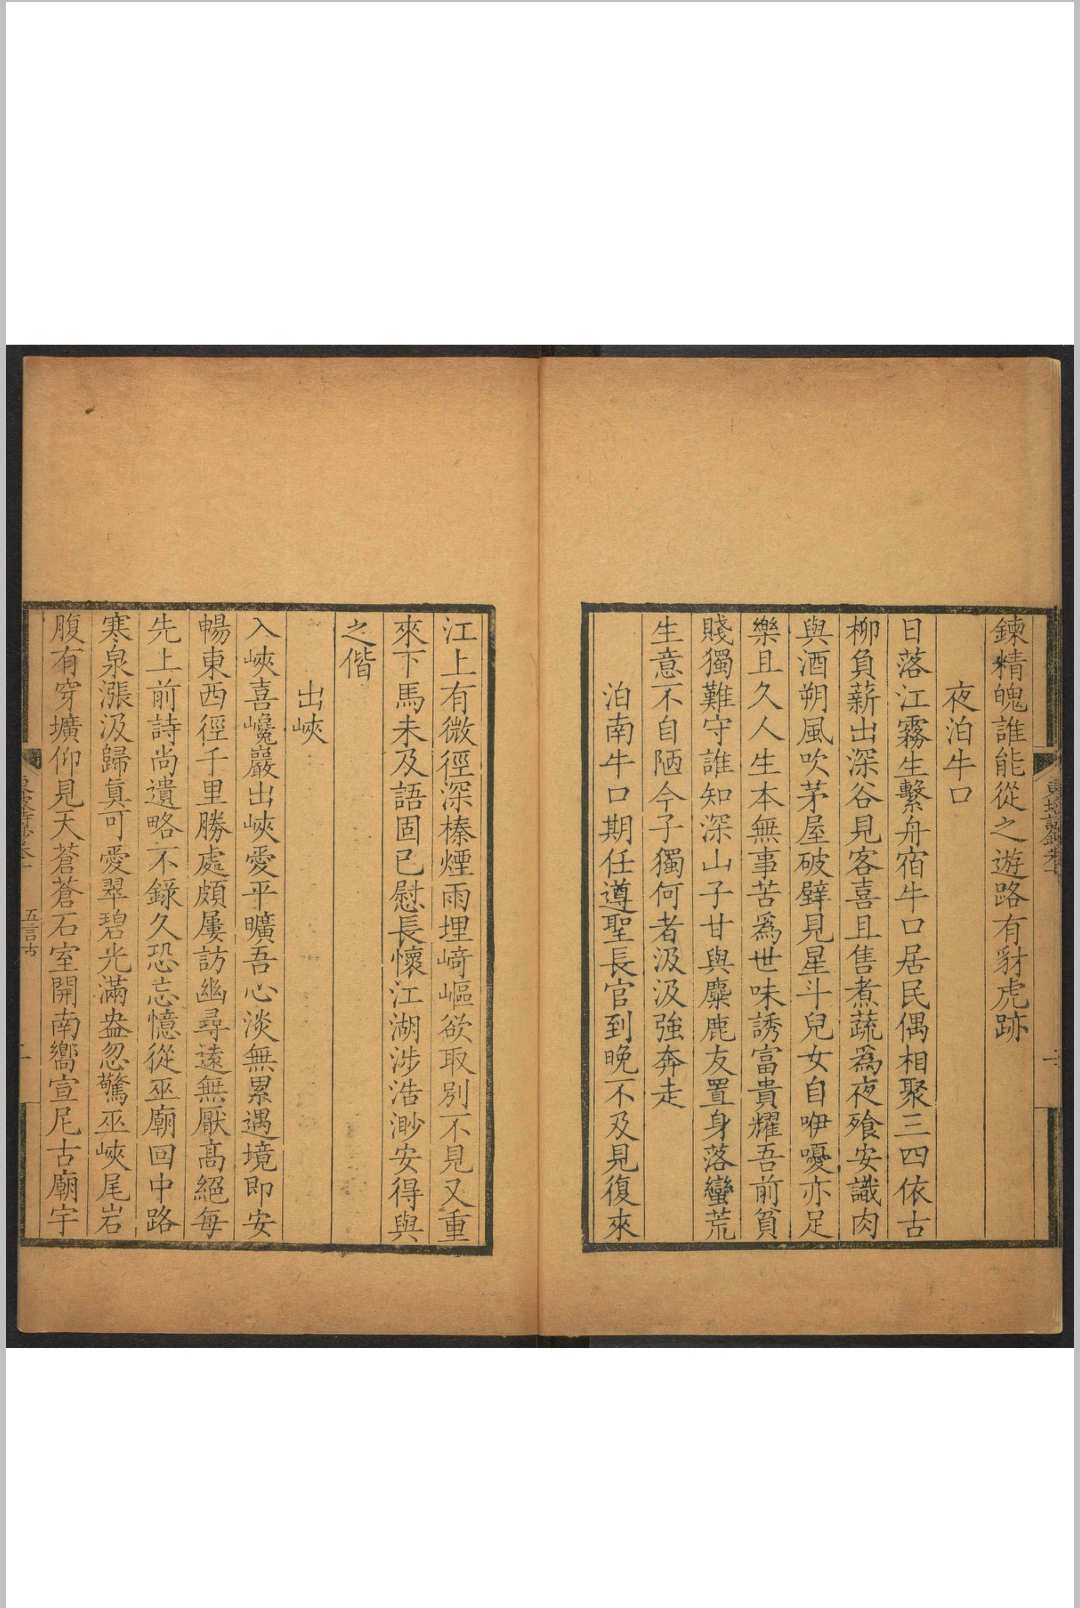 鍊精魄誰能從之遊路有豺虎跡
夜泊牛口
日落江霧生繫舟宿牛口居民偶相聚三四依古
柳負薪出深谷見客喜且售煮蔬爲夜飱安識肉
與酒朔風吹茅屋破壁見星斗兒女自咿嚘亦足
樂且久人生本無事苦爲世味誘富貴耀吾前貧
賤獨難守誰知深山子甘與麋鹿友置身落蠻荒
生意不自陋今予獨何者汲汲強奔走
泊南牛口期任遵聖長官到晚不及見復來
江上有微徑深榛煙雨埋崎嶇欲取別不見又重
來下馬未及語固已慰長懷江湖涉浩渺安得與
之偕
出峽
入峽喜巉巖出峽愛平曠吾心淡無累遇境即安
暢東西徑千里勝處頗屢訪幽尋遠無厭高絕每
先上前詩尚遺略不錄久恐忘憶從巫廟回中路
寒泉漲汲歸真可愛翠碧光滿盎忽驚巫峽尾岩
腹有穿壙仰見天蒼蒼石室開南嚮宣尼古廟宇
五言古